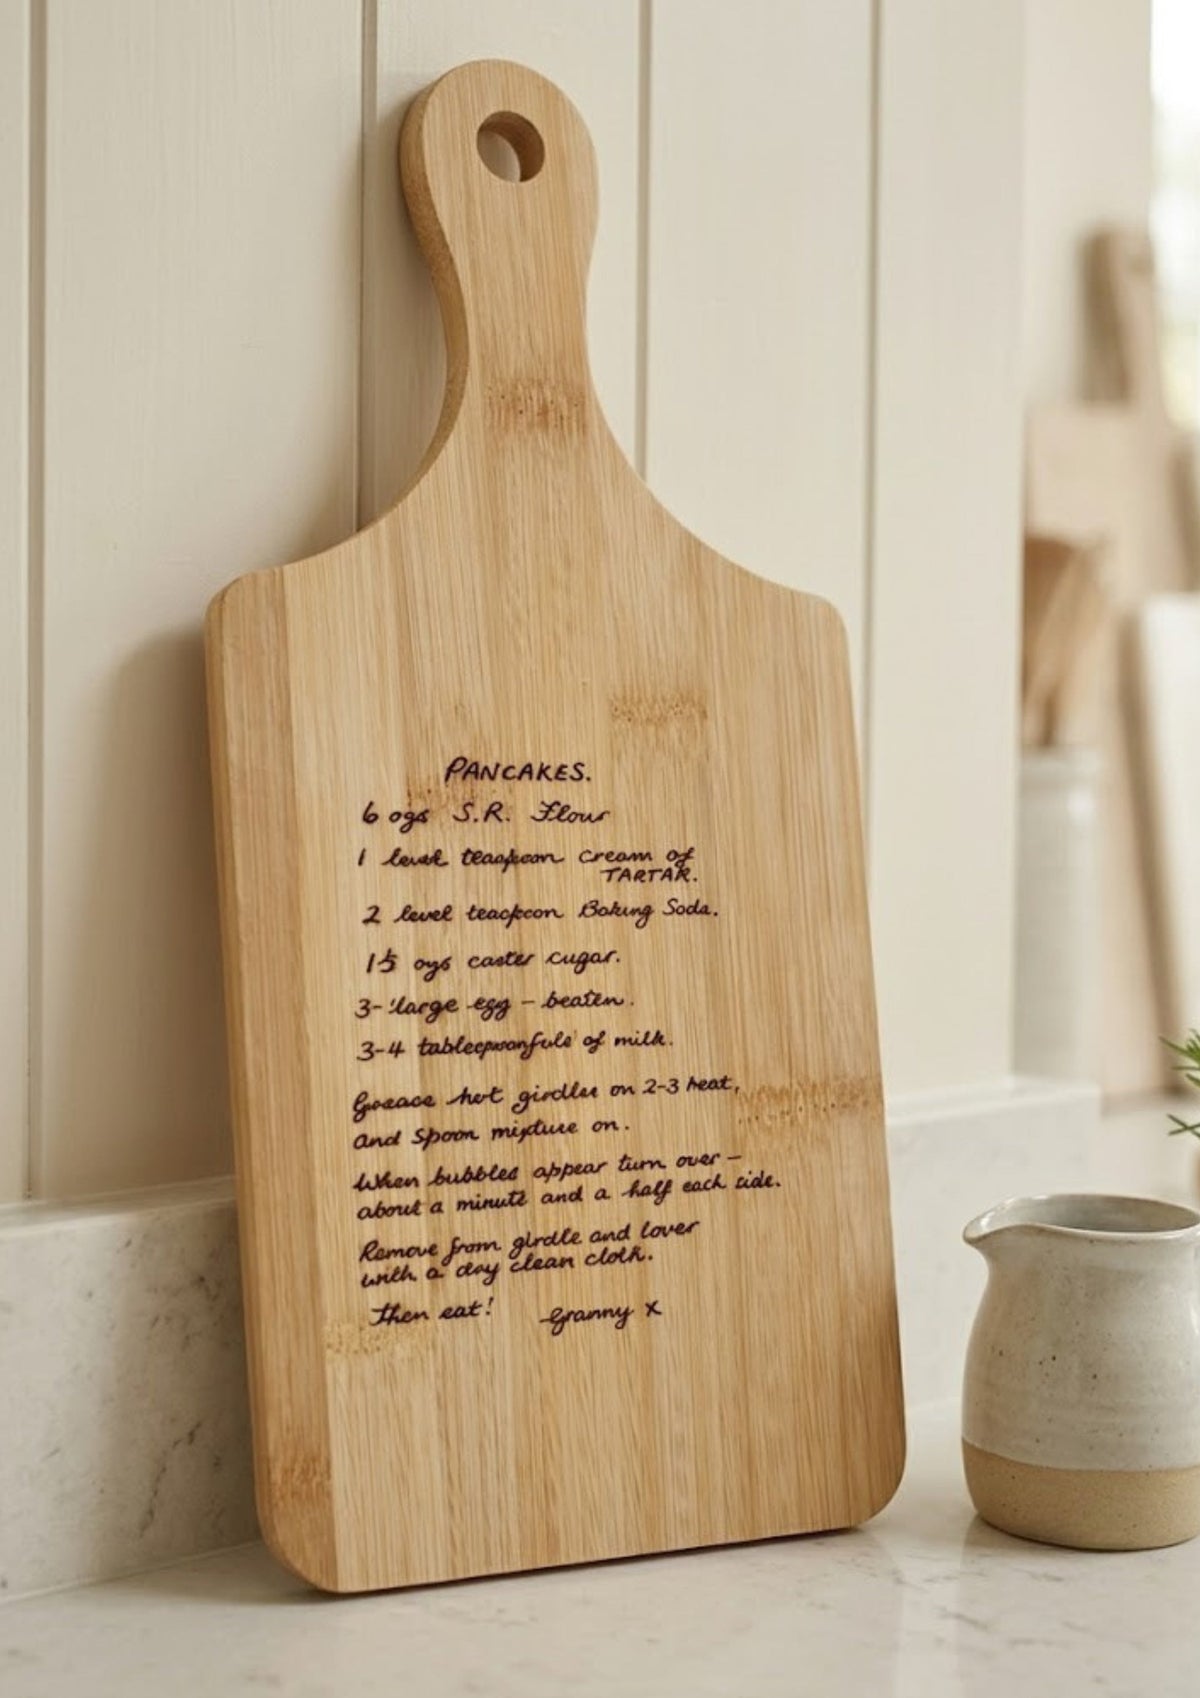 PANCAKES.
6 ozs S.R. Flour
1 level teaspoon cream of
TARTAR.
2 level teaspoon Baking Soda.
15 ozs caster cugar.
3-large egg - beaten.
3-4 tablespoonfuls of milk.
Grease hot girdle on 2-3 heat,
and spoon mixture on.
When bubbles appear turn over -
about a minute and a half each side.
Remove from girdle and cover
with a dry clean cloth.
Then eat! Granny x